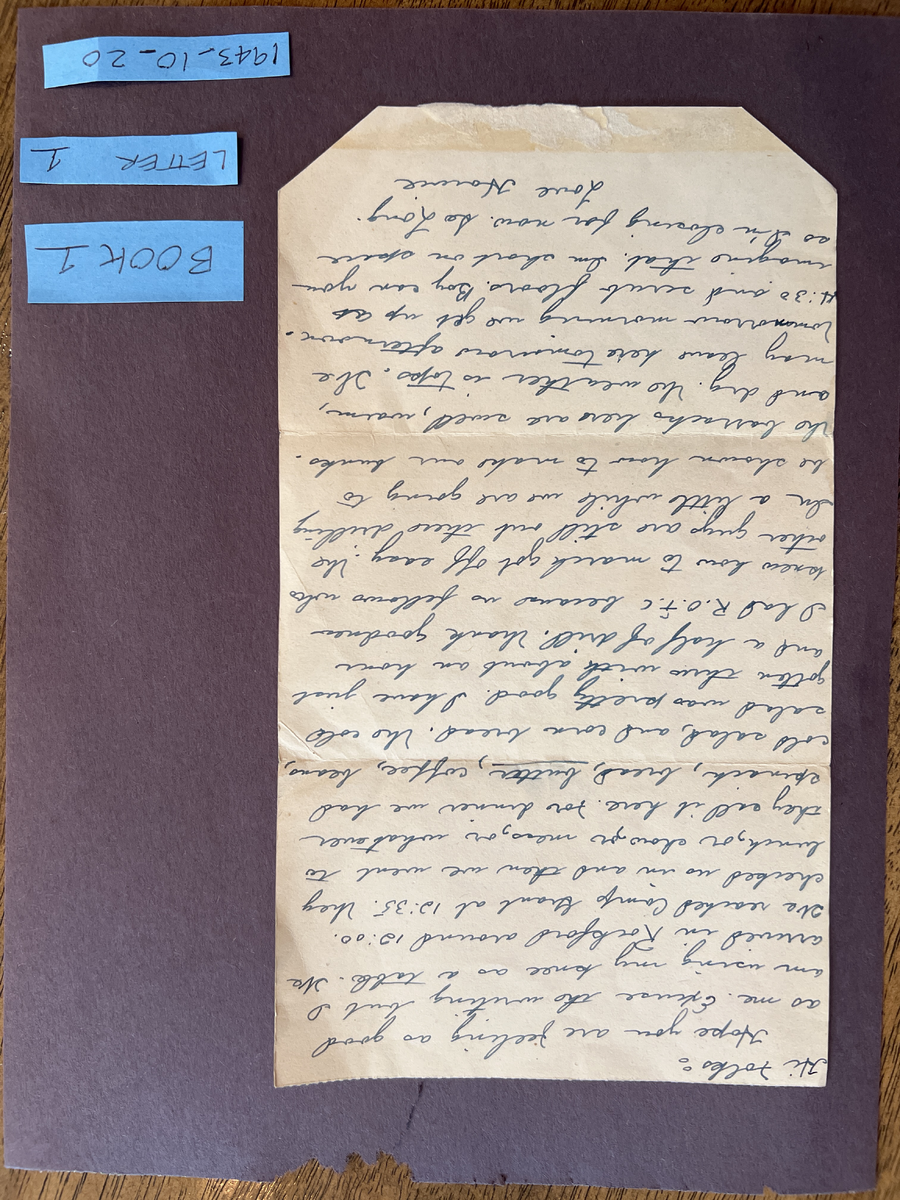 BOOK 1
LETTER 1
1943_10_20
Hi Folks:
Hope you are feeling as good
as me. Excuse the writing but I
am using my knee as a table. We
arrived in Rockford around 12:00.
We reached Camp Grant at 12:35. They
checked us in and then we went to
lunch, or chow, or mess, or whatever
they call it here. For dinner we had
spinach, bread, butter, coffee, beans,
cold salad, and corn bread. The cold
salad was pretty good. I have just
gotten thru with about an hour
and a half of drill. Thank goodness
I had R.O.T.C because us fellows who
knew how to march got off easy. The
other guys are still out there drilling
In a little while we are going to
be shown how to make our bunks.
The barracks here are swell, warm,
and dry. The weather is tops. We
may leave here tomorrow afternoon.
Tommorow morning we get up at
4:30 and scrub floors. Boy can you
imagine that. Im short on space
so I'm closing for now. So Long.
Love Howie